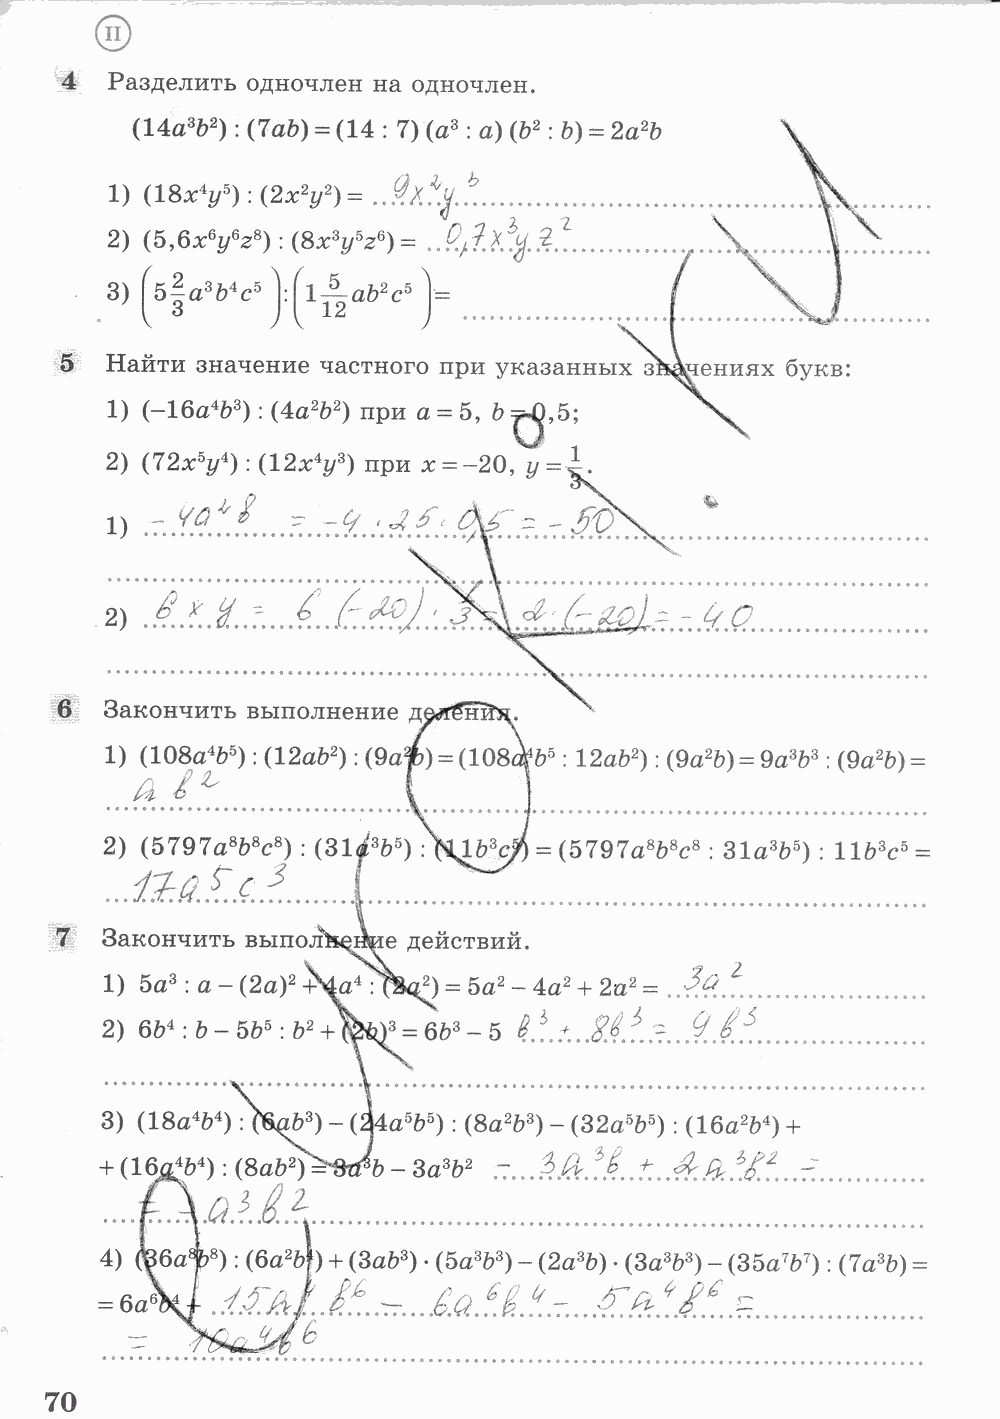 II
4 Разделить одночлен на одночлен.
(14a³b²) : (7ab) = (14 : 7) (a³ : a) (b² : b) = 2a²b
1) (18x⁴y⁵) : (2x²y²) = 9x²y³
2) (5,6x⁶y⁶z⁸) : (8x³y⁵z⁶) = 0,7x³yz²
3) (5 2/3 a³b⁴c⁵) : (1 5/12 ab²c⁵) =
5 Найти значение частного при указанных значениях букв:
1) (−16a⁴b³) : (4a²b²) при a = 5, b = 0,5;
2) (72x⁵y⁴) : (12x⁴y³) при x = −20, y = 1/3.
1) −4a²b = −4 · 25 · 0,5 = −50
2) 6xy = 6 (−20) · 1/3 = 2 · (−20) = −40
6 Закончить выполнение деления.
1) (108a⁴b⁵) : (12ab²) : (9a²b) = (108a⁴b⁵ : 12ab²) : (9a²b) = 9a³b³ : (9a²b) =
ab²
2) (5797a⁸b⁸c⁸) : (31a³b⁵) : (11b³c⁵) = (5797a⁸b⁸c⁸ : 31a³b⁵) : 11b³c⁵ =
17a⁵c³
7 Закончить выполнение действий.
1) 5a³ : a − (2a)² + 4a⁴ : (2a²) = 5a² − 4a² + 2a² = 3a²
2) 6b⁴ : b − 5b⁵ : b² + (2b)³ = 6b³ − 5 b³ + 8b³ = 9b³
3) (18a⁴b⁴) : (6ab³) − (24a⁵b⁵) : (8a²b³) − (32a⁵b⁵) : (16a²b⁴) +
+ (16a⁴b⁴) : (8ab²) = 3a³b − 3a³b² − 3a³b + 2a³b² =
= − a³b²
4) (36a⁸b⁸) : (6a²b⁴) + (3ab³) · (5a³b³) − (2a³b) · (3a³b³) − (35a⁷b⁷) : (7a³b) =
= 6a⁶b⁴ + 15a⁴b⁶ − 6a⁶b⁴ − 5a⁴b⁶ =
= 10a⁴b⁶
70